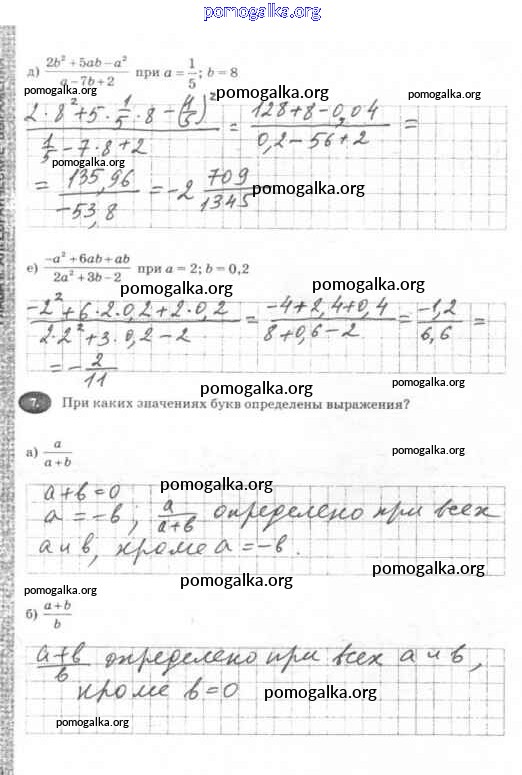 pomogalka.org
д) (2b² + 5ab − a²)/(a − 7b + 2) при a = 1/5; b = 8
pomogalka.org pomogalka.org
(2·8² + 5·1/5·8 − (1/5)²)/(1/5 − 7·8 + 2) = (128 + 8 − 0,04)/(0,2 − 56 + 2) =
pomogalka.org pomogalka.org
= 135,96/−53,8 = −2 709/1345
pomogalka.org
е) (−a² + 6ab + ab)/(2a² + 3b − 2) при a = 2; b = 0,2
pomogalka.org pomogalka.org
(−2² + 6·2·0,2 + 2·0,2)/(2·2² + 3·0,2 − 2) = (−4 + 2,4 + 0,4)/(8 + 0,6 − 2) = −1,2/6,6 =
= −2/11
pomogalka.org pomogalka.org
7. При каких значениях букв определены выражения?
а) a/(a + b)
pomogalka.org
a + b = 0
pomogalka.org
a = −b; a/(a+b) определено при всех
a и b, кроме a = −b.
pomogalka.org pomogalka.org
pomogalka.org
б) (a + b)/b
pomogalka.org
(a+b)/b определено при всех a и b,
кроме b = 0
pomogalka.org
pomogalka.org